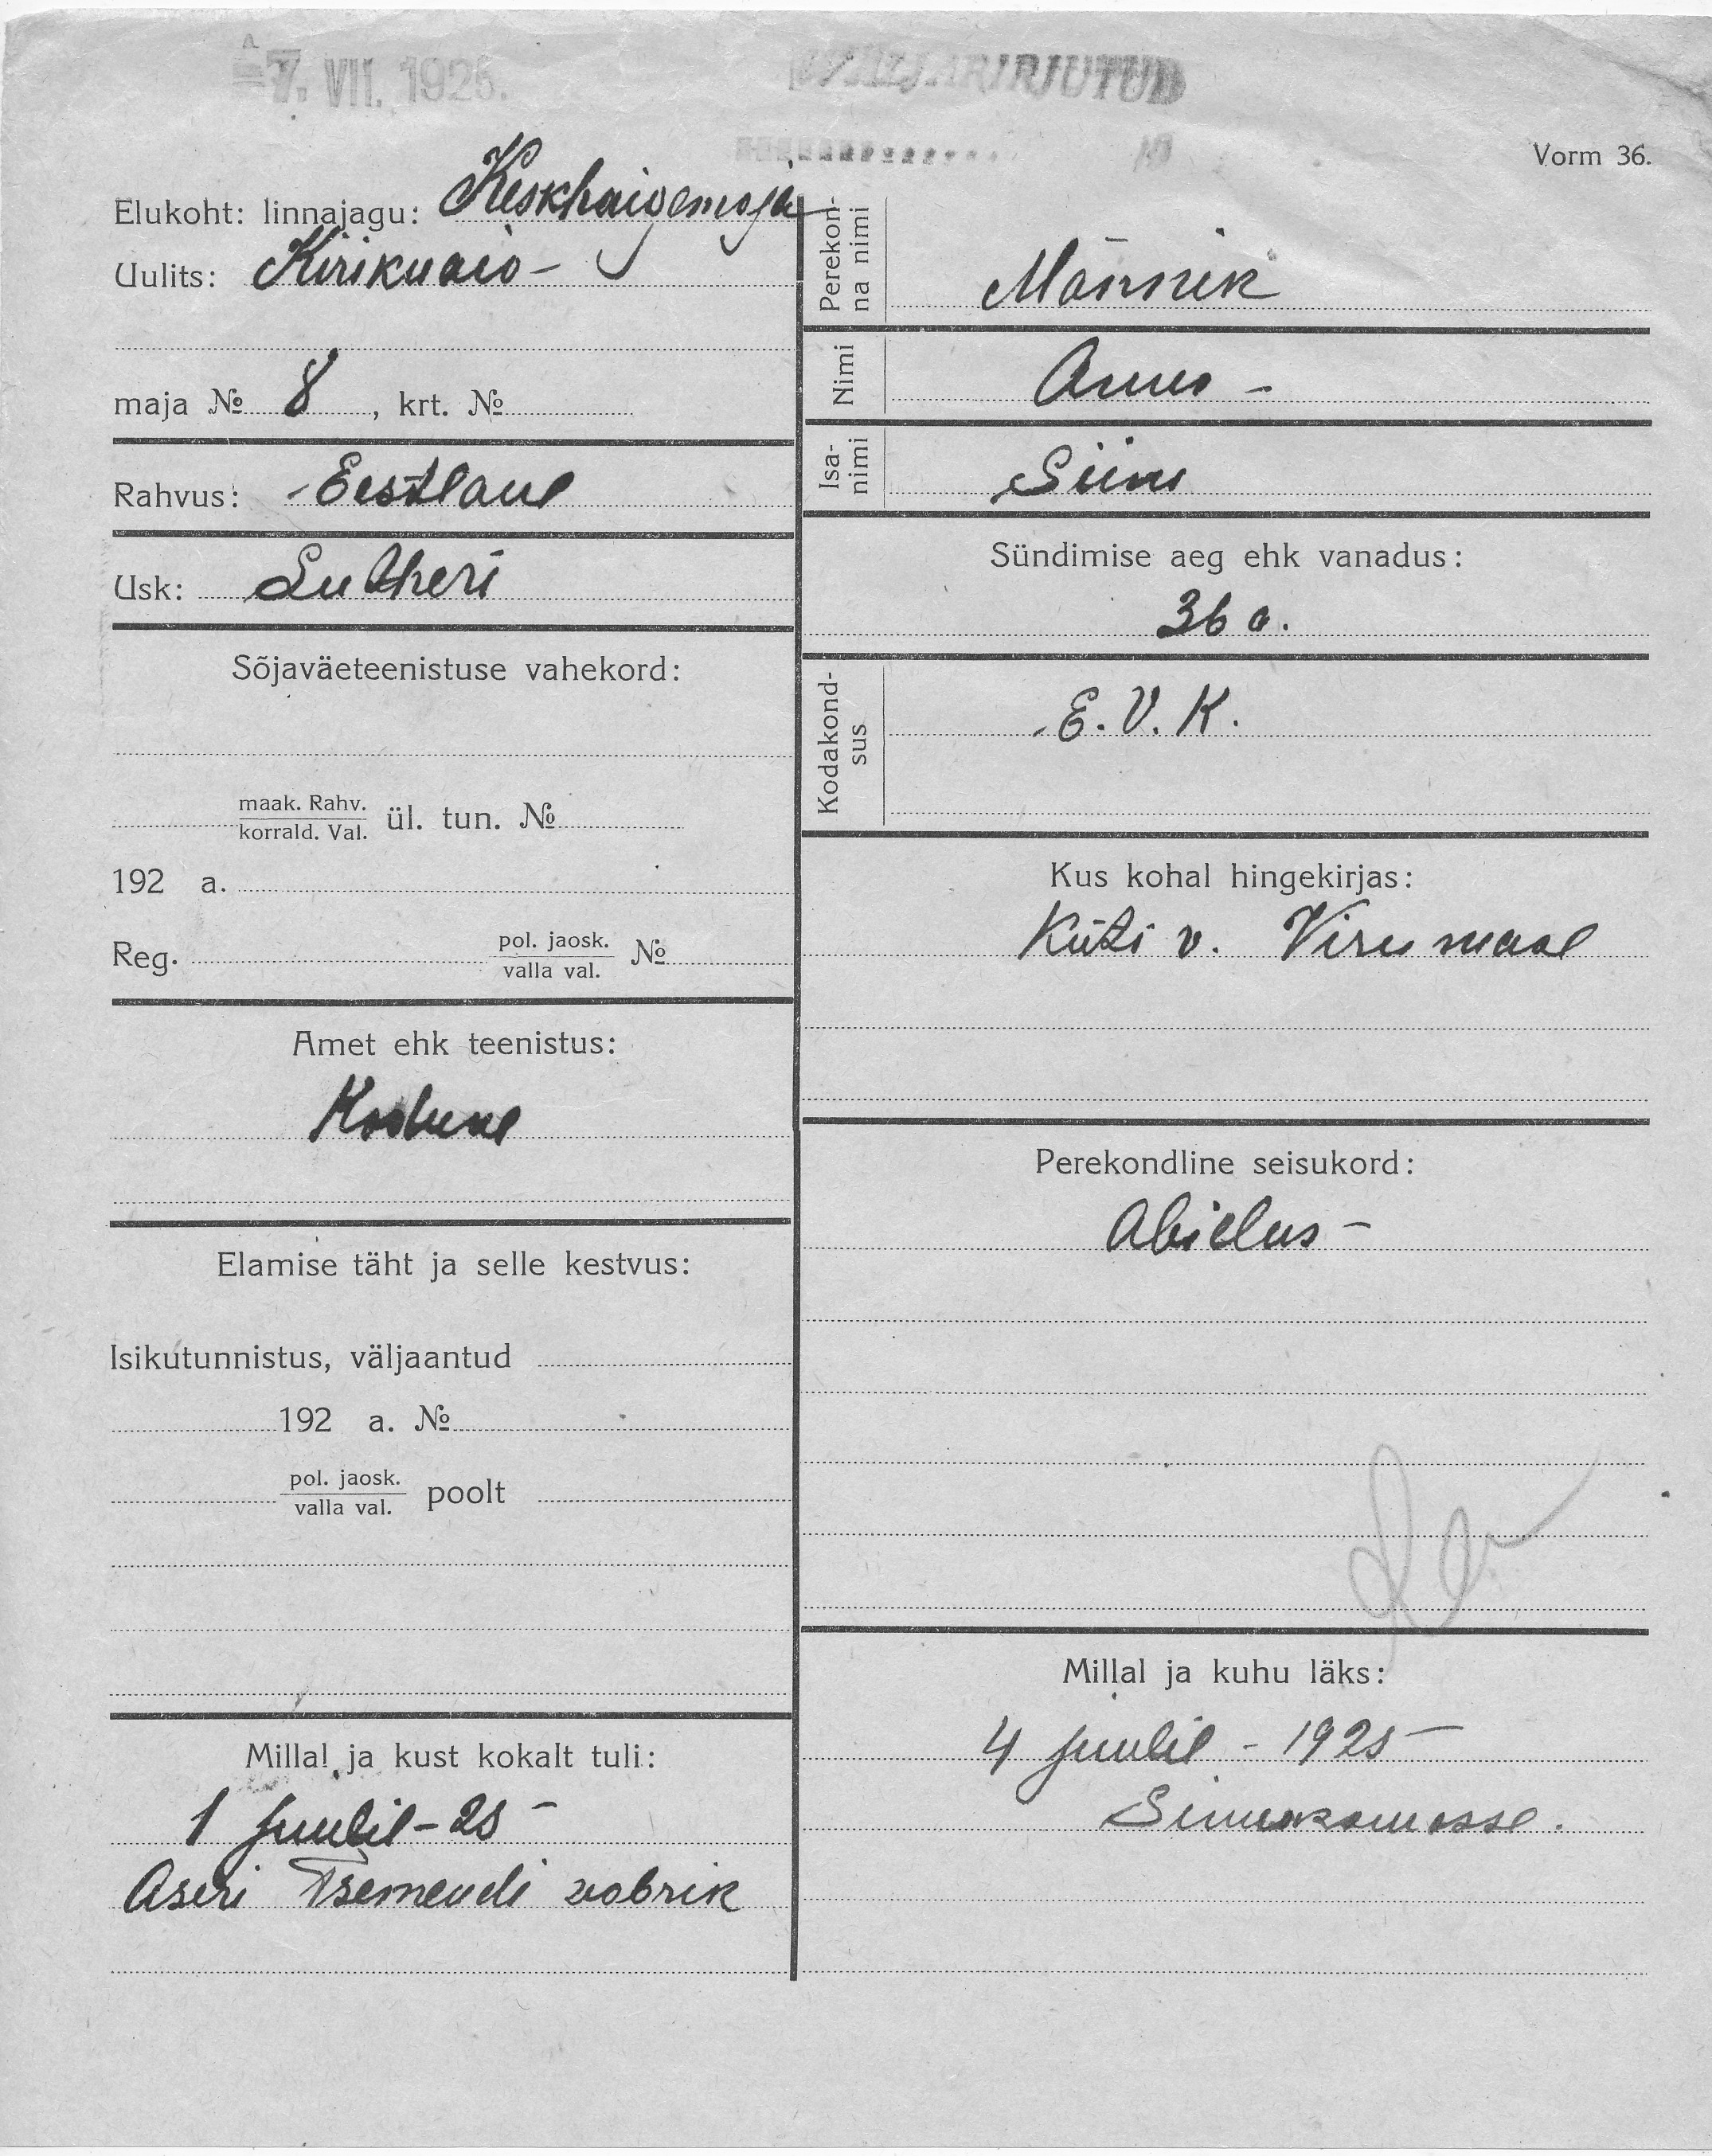 7. VII. 1925.
VÄLJAKIRJUTUD
Vorm 36.
Elukoht: linnajagu: Keskhaigemaja
Uulits: Kirikuaia -
maja № 8, krt. №
Rahvus: Eestlane
Usk: Lutheri
Sõjaväeteenistuse vahekord:
maak. Rahv.
korrald. Val. ül. tun. №
192 a.
Reg. pol. jaosk. №
valla val.
Amet ehk teenistus:
Kodune
Elamise täht ja selle kestvus:
Isikutunnistus, väljaantud
192 a. №
pol. jaosk.
valla val. poolt
Millal ja kust kokalt tuli:
1 juulil - 25 -
Aseri Tsemendi vabrik
Perekon-
na nimi
Männik
Nimi
Anna -
Isa-
nimi
Siim
Sündimise aeg ehk vanadus:
36 a.
Kodakond-
sus
E. V. K.
Kus kohal hingekirjas:
Küti v. Viru maal
Perekondline seisukord:
Abielus -
Millal ja kuhu läks:
4 juulil - 1925 -